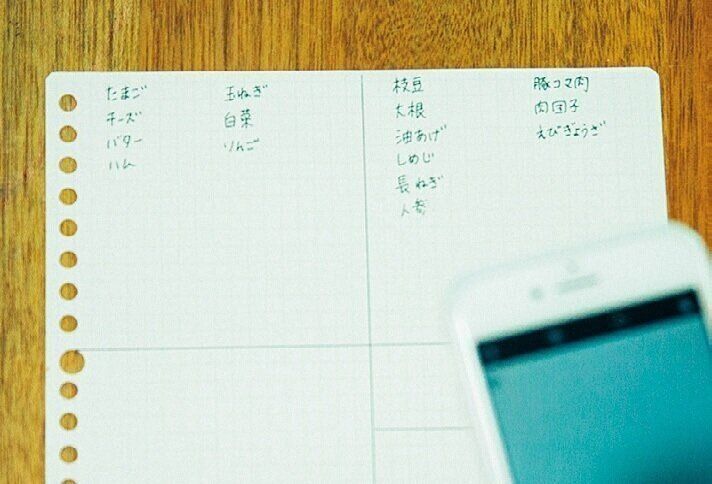 たまご
チーズ
バター
ハム
玉ねぎ
白菜
りんご
枝豆
大根
油あげ
しめじ
長ねぎ
人参
豚コマ肉
肉団子
えびぎょうざ